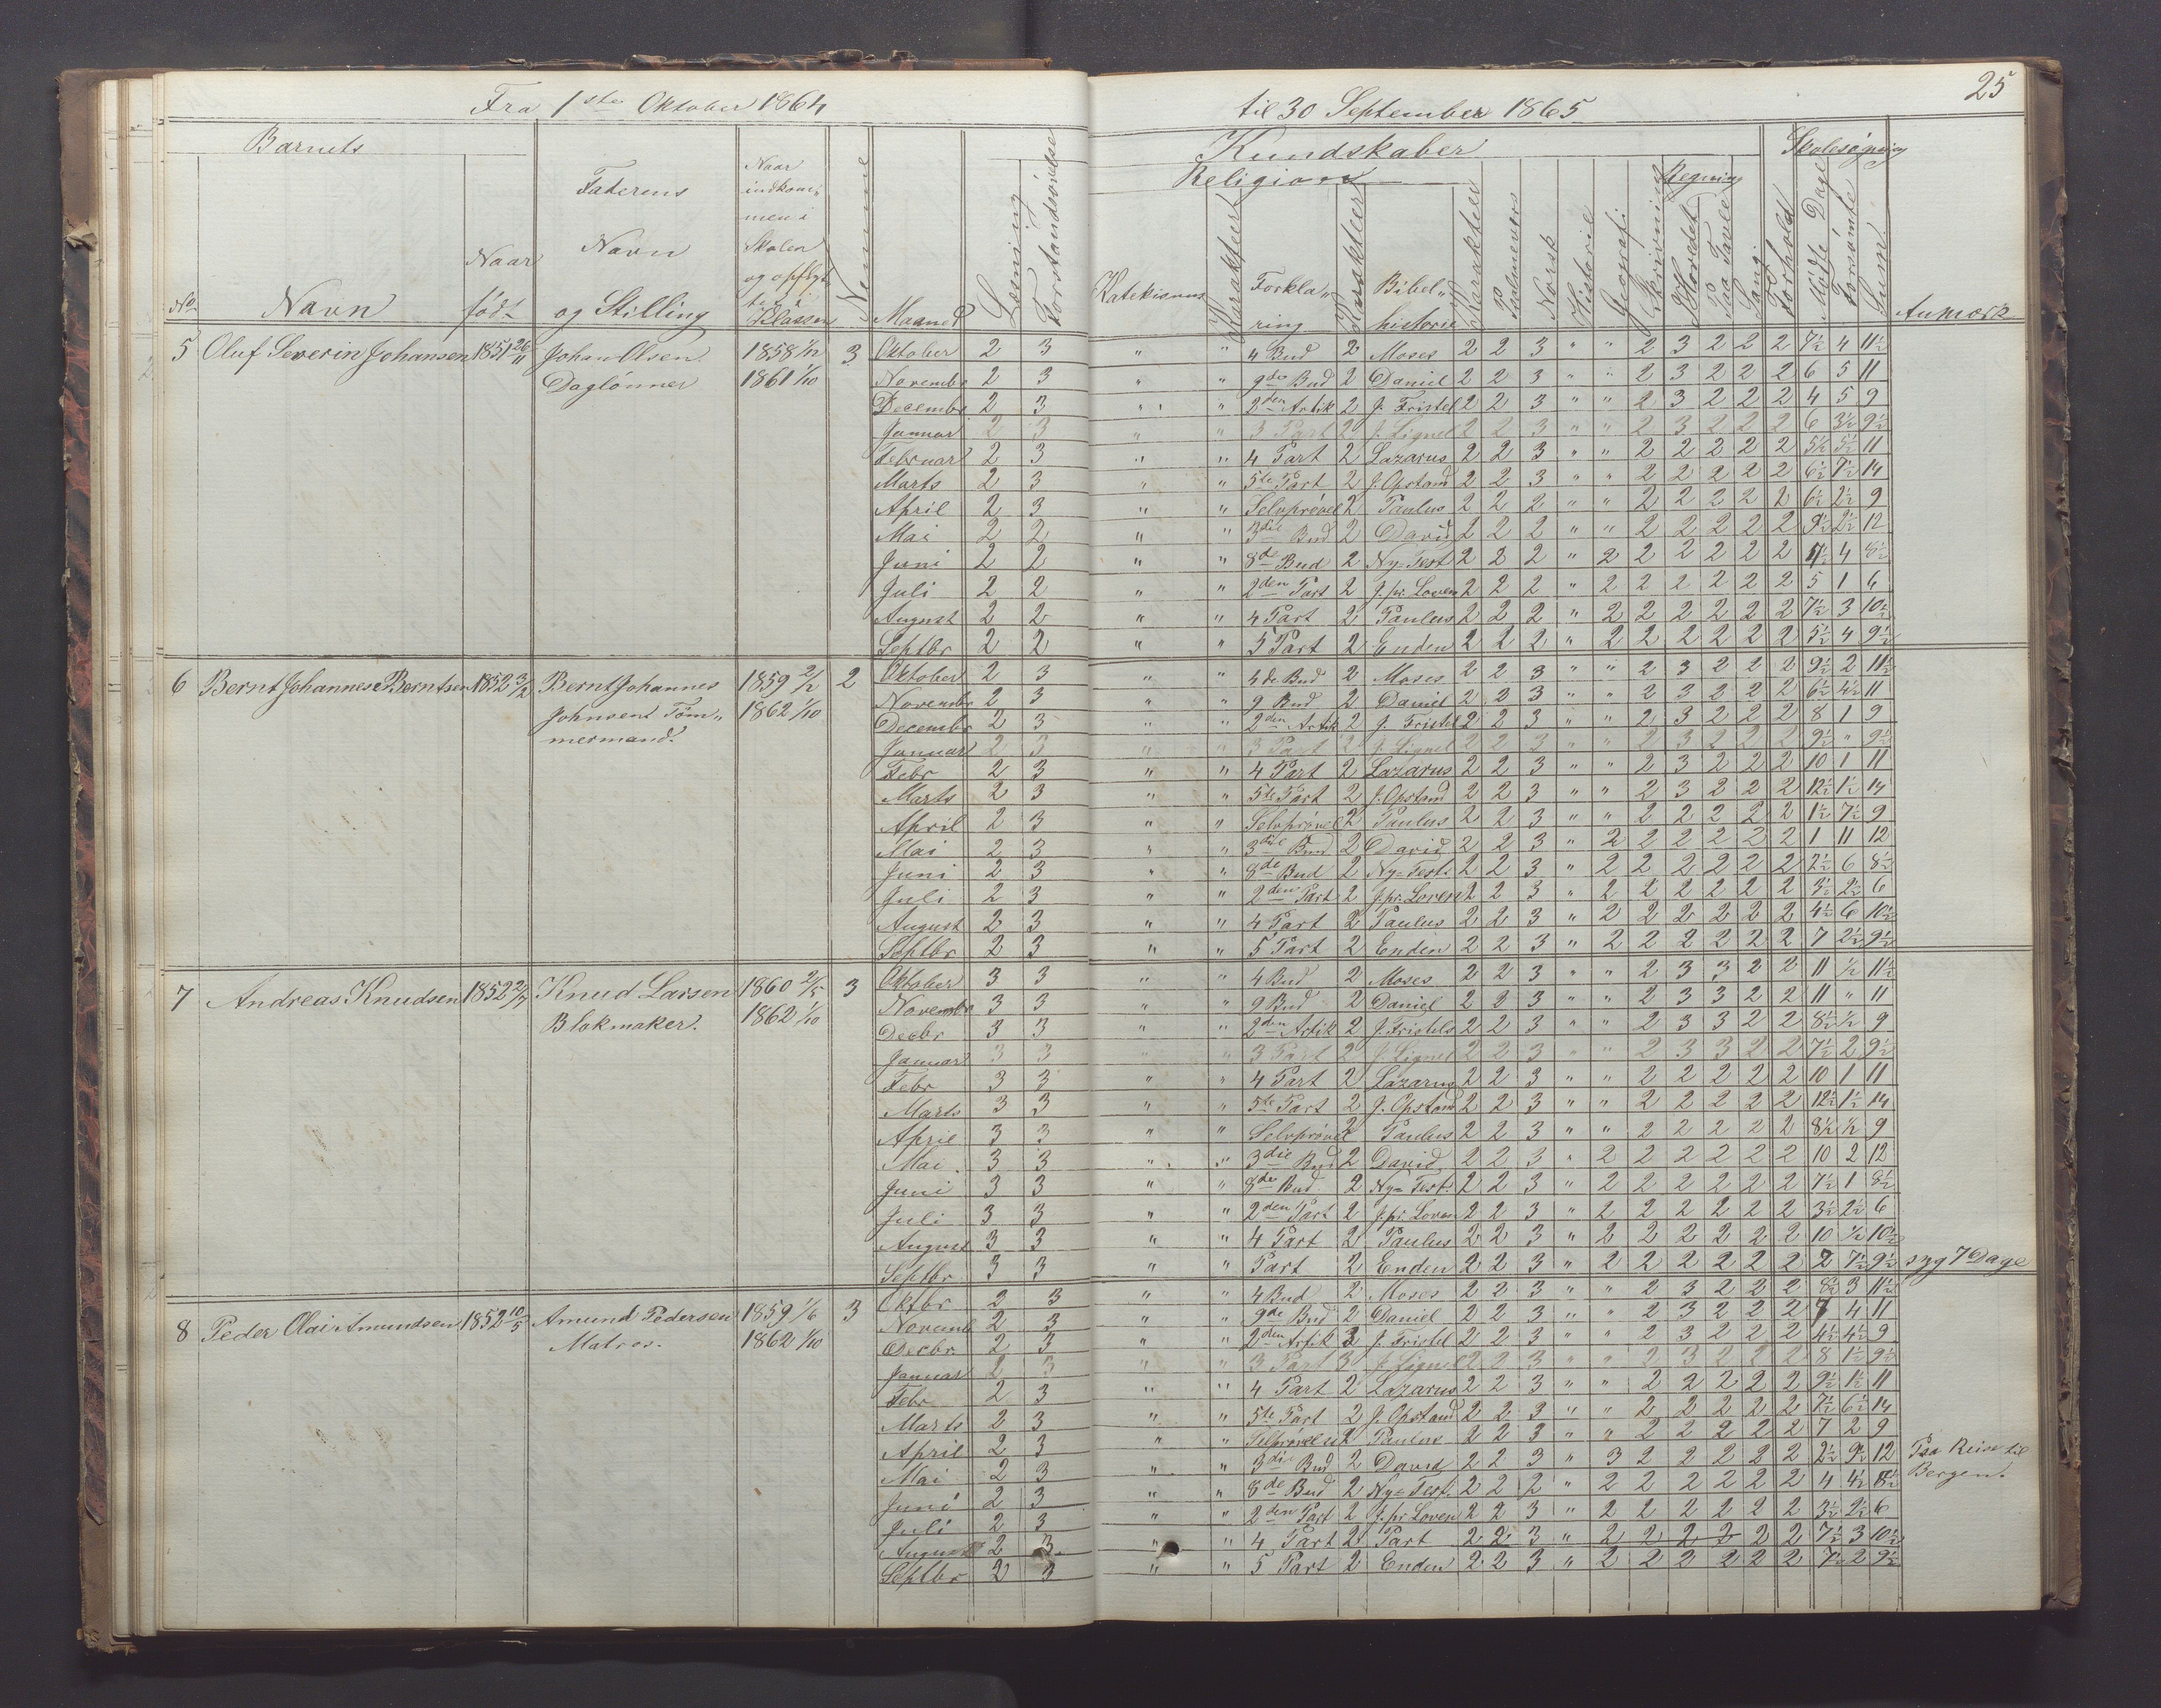 25
Fra 1ste Oktober 1864 til 30 September 1865
Barnets
No
Navn
Naar født
Faderens Navn og Stilling
Naar indkommen i Skolen og opflyttet i Klassen
Nemme
Maaned
Læsning
Forstandsøvelse
Kundskaber
Religion
Katekismus
Karakteer
Forklaring
Karakteer
Bibelhistorie
Karakteer
Psalmevers
Norsk
Historie
Geografi
Skrivning
Regning
I Hovedet
Paa Tavle
Sang
Forhold
Skolesøgning
Mødte Dage
Forsømte
Sum
Anmærk
5 Oluf Severin Johansen 1851 26/11 Johan Olsen 1858 1/12 3
Daglønner 1861 1/10
Oktober 2 3 " " 4 Bud 2 Moses 2 2 3 " " 2 3 2 2 2 7½ 4 11½
Novembr 2 3 " " 9de Bud 2 Daniel 2 2 3 " " 2 3 2 2 2 6 5 11
Decembr 2 3 " " 2den Artik 2 J. Fristel 2 2 3 " " 2 3 2 2 2 4 5 9
Januar 2 3 " " 3 Part 2 J. Lignel 2 2 3 " " 2 3 2 2 2 6 3½ 9½
Februar 2 3 " " 4 Part 2 Lazarus 2 2 3 " " 2 2 2 2 2 5½ 5½ 11
Marts 2 3 " " 5te Part 2 J. Opstand 2 2 3 " " 2 2 2 2 2 6½ 7½ 14
April 2 3 " " Selvprøvel 2 Paulus 2 2 2 " " 2 2 2 2 2 6½ 2½ 9
Mai 2 2 " " 3die Bud 2 David 2 2 2 " " 2 2 2 2 2 9½ 2½ 12
Juni 2 2 " " 8de Bud 2 Ny=Test 2 2 2 " 2 2 2 2 2 2 4½ 4 8½
Juli 2 2 " " 2den Part 2 J. pr. Loven 2 2 2 " 2 2 2 2 2 2 5 1 6
August 2 2 " " 4 Part 2 Paulus 2 2 2 " 2 2 2 2 2 2 7½ 3 10½
Septbr 2 2 " " 5 Part 2 Enden 2 2 2 " 2 2 2 2 2 2 5½ 4 9½
6 Bernt Johannes Berntsen 1852 3/2 Bernt Johannes 1859 2/12 2
Johnsen Töm„ 1862 1/10
mermand.
Oktober 2 3 " " 4de Bud 2 Moses 2 2 3 " " 2 3 2 2 2 9½ 2 11½
Novembr 2 3 " " 9 Bud 2 Daniel 2 2 3 " " 2 3 2 2 2 6½ 4½ 11
Decembr 2 3 " " 2den Artik 2 J. Fristel 2 2 3 " " 2 3 2 2 2 8 1 9
Januar 2 3 " " 3 Part 2 J. Lignel 2 2 3 " " 2 3 2 2 2 9½ " 9½
Febr 2 3 " " 4 Part 2 Lazarus 2 2 3 " " 2 3 2 2 2 10 1 11
Marts 2 3 " " 5te Part 2 J. Opstand 2 2 3 " " 2 3 2 2 2 12½ 1½ 14
April 2 3 " " Selvprøvel 2 Paulus 2 2 3 " " 2 2 2 2 2 1½ 7½ 9
Mai 2 3 " " 3die Bud 2 David 2 2 3 " 2 2 2 2 2 2 1 11 12
Juni 2 3 " " 8de Bud 2 Ny=Test. 2 2 3 " 2 2 2 2 2 2 2½ 6 8½
Juli 2 3 " " 2den Part 2 J. pr. Loven 2 2 3 " 2 2 2 2 2 2 3½ 2½ 6
August 2 3 " " 4 Part 2 Paulus 2 2 3 " 2 2 2 2 2 2 4½ 6 10½
Septbr 2 3 " " 5 Part 2 Enden 2 2 3 " 2 2 2 2 2 2 7 2½ 9½
7 Andreas Knudsen 1852 2/7 Knud Larsen 1860 2/5 3
Blokmaker. 1862 1/10
Oktober 3 3 " " 4 Bud 2 Moses 2 2 3 " " 2 3 3 2 2 11 ½ 11½
Novembr 3 3 " " 9 Bud 2 Daniel 2 2 3 " " 2 3 3 2 2 11 " 11
Decbr 3 3 " " 2den Artik 2 J. Fristels 2 2 3 " " 2 3 3 2 2 8½ ½ 9
Januar 3 3 " " 3 Part 2 J. Lignel 2 2 3 " " 2 3 3 2 2 7½ 2 9½
Febr 3 3 " " 4 Part 2 Lazarus 2 2 3 " " 2 2 2 2 2 10 1 11
Marts 3 3 " " 5te Part 2 J. Opstand 2 2 3 " " 2 2 2 2 2 12½ 1½ 14
April 3 3 " " Selvprøvel 2 Paulus 2 2 3 " " 2 2 2 2 2 8½ ½ 9
Mai 3 3 " " 3die Bud 2 David 2 2 3 " 2 2 2 2 2 2 10 2 12
Juni 3 3 " " 8de Bud 2 Ny=Test. 2 2 3 " 2 2 2 2 2 2 7½ 1 8½
Juli 3 3 " " 2den Part 2 J. pr. Loven 2 2 3 " 2 2 2 2 2 2 3½ 2½ 6
August 3 3 " " 4 Part 2 Paulus 2 2 3 " 2 2 2 2 2 2 10 ½ 10½
Septbr 3 3 " " Part 2 Enden 2 2 3 " 2 2 2 2 2 2 2 7½ 9½ syg 7 Dage
8 Peder Olai Amundsen 1852 10/5 Amund Pedersen 1859 1/6 3
Matros. 1862 1/10
Oktbr 2 3 " " 4 Bud 2 Moses 2 2 3 " " 2 3 2 2 2 8½ 3 11½
Novemb 2 3 " " 9de Bud 2 Daniel 2 2 3 " " 2 3 2 2 2 7 4 11
Decbr. 2 3 " " 2den Artik 3 J. Fristel 2 2 3 " " 2 3 2 2 2 4½ 4½ 9
Januar 2 3 " " 3 Part 3 J. Lignel 2 2 3 " " 2 3 2 2 2 8 1½ 9½
Febr 2 3 " " 4 Part 2 Lazarus 2 2 3 " " 2 2 2 2 2 9½ 1½ 11
Marts 2 3 " " 5te Part 2 J. Opstand 2 2 3 " " 2 2 2 2 2 7½ 6½ 14
April 2 3 " " 2 Paulus 2 2 3 " " 2 2 2 2 2 7 2 9
Mai 2 3 " " 3die Bud 2 David 2 2 3 " 3 2 2 2 2 2 2½ 9½ 12 Paa Reise til
Bergen.
Juni 2 3 " " 8de Bud 2 Ny=Test. 2 2 2 " 2 2 2 2 2 2 4 4½ 8½
Juli 2 3 " " 2den Part 2 J. pr Loven 2 2 3 " 2 2 2 2 2 2 3½ 2½ 6
August 2 3 " " 4 Part 2 Part 2 2 3 " 2 2 2 2 2 2 7½ 3 10½
Septbr 2 3 " " 5 Part 2 Enden 2 2 3 " 2 2 2 2 2 2 7½ 2 9½